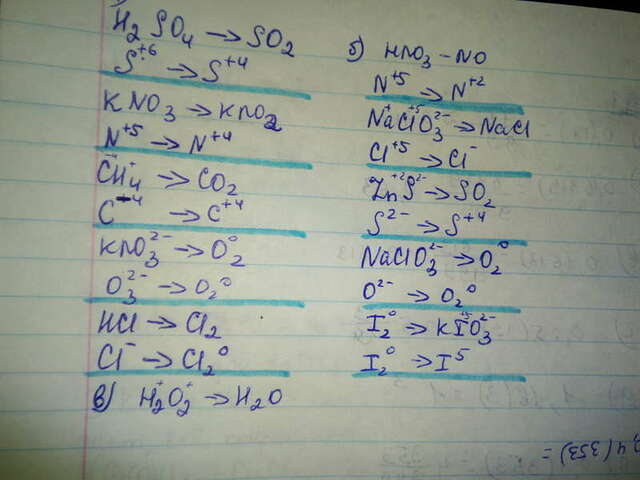 H₂SO₄ → SO₂
S⁺⁶ → S⁺⁴
KNO₃ → KNO₂
N⁺⁵ → N⁺⁴
C⁻H₄⁺ → CO₂
C⁻⁴ → C⁺⁴
KNO₃²⁻ → O₂⁰
O₃²⁻ → O₂⁰
HCl → Cl₂
Cl⁻ → Cl₂⁰
в) H₂⁺O₂⁻ → H₂O
б) HNO₃ – NO
N⁺⁵ → N⁺²
Na⁺Cl⁺⁵O₃²⁻ → NaCl
Cl⁺⁵ → Cl⁻
Zn⁺²S²⁻ → SO₂
S²⁻ → S⁺⁴
NaClO₃²⁻ → O₂⁰
O²⁻ → O₂⁰
I₂⁰ → KI⁺⁵O₃²⁻
I₂⁰ → I⁵
4 (353) =